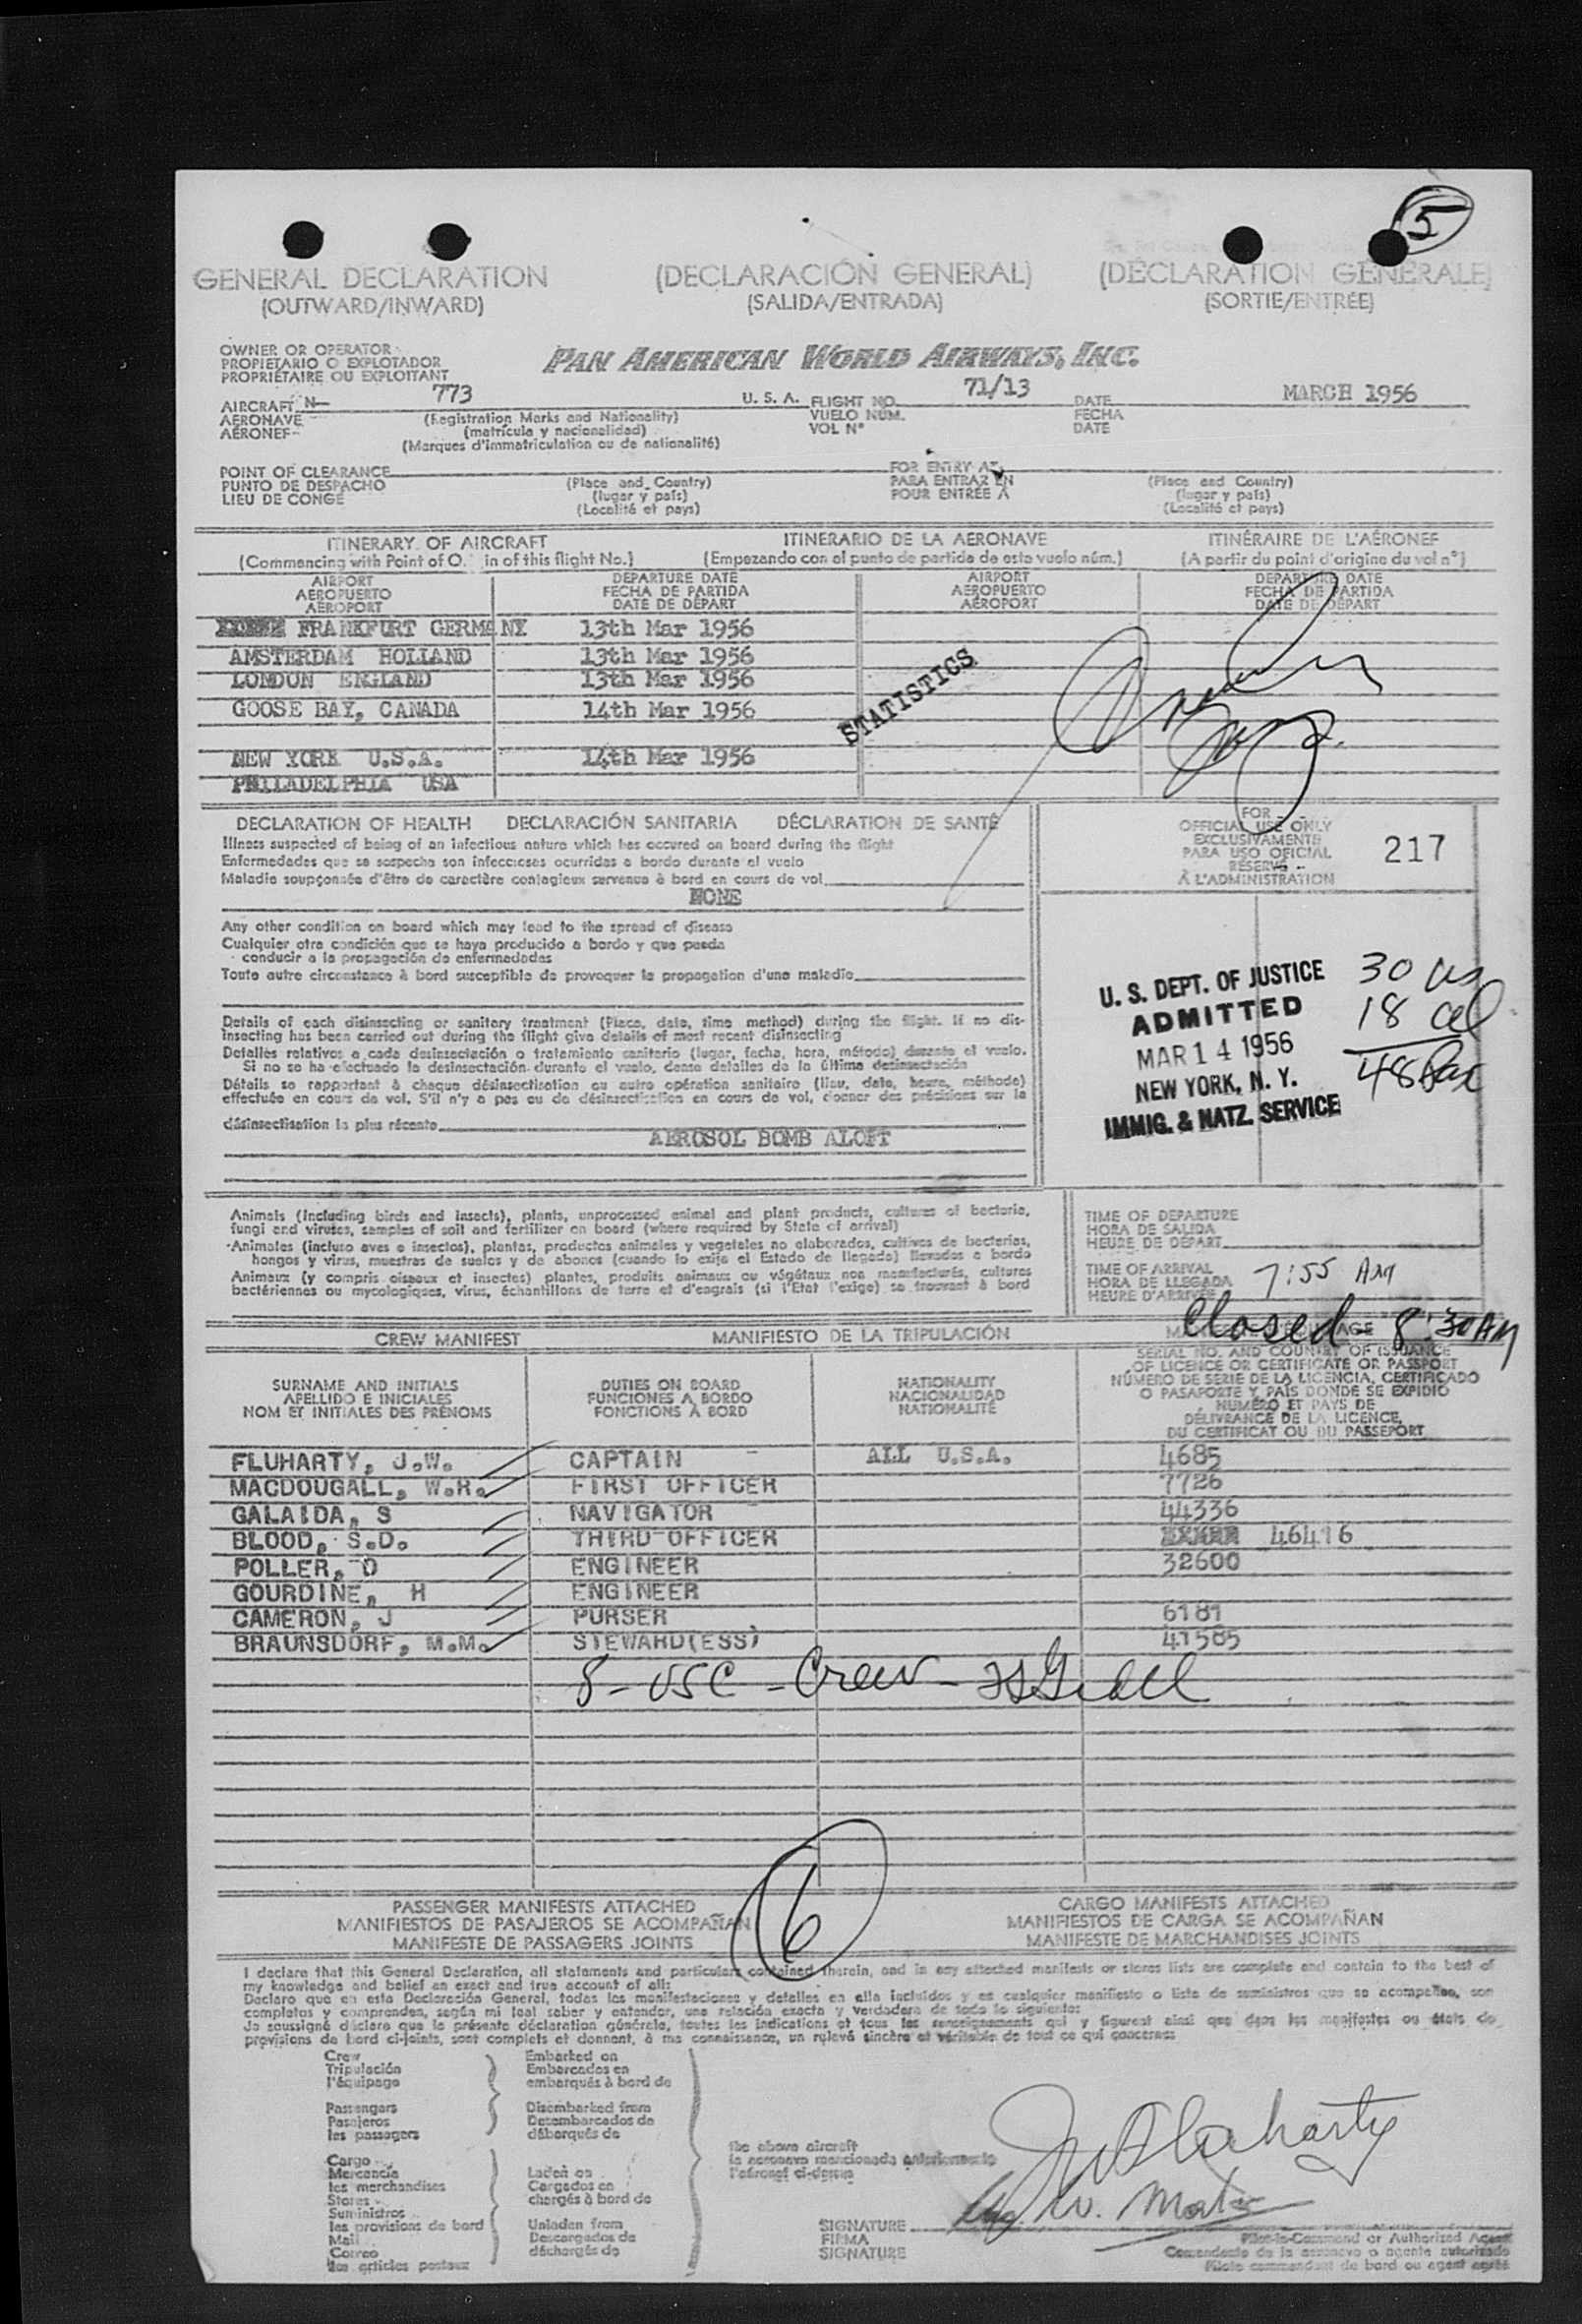 5
GENERAL DECLARATION (DECLARACIÓN GENERAL) (DÉCLARATION GÉNÉRALE)
(OUTWARD/INWARD) (SALIDA/ENTRADA) (SORTIE/ENTRÉE)
OWNER OR OPERATOR
PROPIETARIO O EXPLOTADOR
PROPRIÉTAIRE OU EXPLOITANT
PAN AMERICAN WORLD AIRWAYS, INC.
AIRCRAFT N- 773 U. S. A. FLIGHT NO. 71/13 DATE MARCH 1956
AERONAVE (Registration Marks and Nationality) VUELO NÚM. FECHA
AÉRONEF (matrícula y nacionalidad) VOL N° DATE
(Marques d'immatriculation ou de nationalité)
POINT OF CLEARANCE FOR ENTRY AT
PUNTO DE DESPACHO (Place and Country) PARA ENTRAR EN (Place and Country)
LIEU DE CONGÉ (lugar y país) POUR ENTRÉE À (lugar y país)
(Localité et pays) (Localité et pays)
ITINERARY OF AIRCRAFT ITINERARIO DE LA AERONAVE ITINÉRAIRE DE L'AÉRONEF
(Commencing with Point of O in of this flight No.) (Empezando con el punto de partida de este vuelo núm.) (A partir du point d'origine du vol n°)
AIRPORT DEPARTURE DATE AIRPORT DEPARTURE DATE
AEROPUERTO FECHA DE PARTIDA AEROPUERTO FECHA DE PARTIDA
AÉROPORT DATE DE DÉPART AÉROPORT DATE DE DÉPART
FRANKFURT GERMANY 13th Mar 1956
AMSTERDAM HOLLAND 13th Mar 1956
LONDON ENGLAND 13th Mar 1956
GOOSE BAY, CANADA 14th Mar 1956
NEW YORK U.S.A. 14th Mar 1956
PHILADELPHIA USA
STATISTICS
DECLARATION OF HEALTH DECLARACIÓN SANITARIA DÉCLARATION DE SANTÉ
Illness suspected of being of an infectious nature which has occured on board during the flight
Enfermedades que se sospecha son infecciosas ocurridas a bordo durante el vuelo
Maladie soupçonnée d'être de caractère contagieux survenue à bord en cours de vol
NONE
Any other condition on board which may lead to the spread of disease
Cualquier otra condición que se haya producido a bordo y que pueda
conducir a la propagación de enfermedades
Toute autre circonstance à bord susceptible de provoquer la propagation d'une maladie
Details of each disinsecting or sanitary treatment (Place, date, time method) during the flight. If no dis-
insecting has been carried out during the flight give details of most recent disinsecting
Detalles relativos a cada desinsectación o tratamiento sanitario (lugar, fecha, hora, método) durante el vuelo.
Si no se ha efectuado la desinsectación durante el vuelo, dense detalles de la última desinsectación
Détails se rapportant à chaque désinsectisation ou autre opération sanitaire (lieu, date, heure, méthode)
effectuée en cours de vol. S'il n'y a pas eu de désinsectisation en cours de vol, donner des précisions sur la
désinsectisation la plus récente
AEROSOL BOMB ALOFT
FOR
OFFICIAL USE ONLY
EXCLUSIVAMENTE
PARA USO OFICIAL
RÉSERVÉ
À L'ADMINISTRATION
217
U. S. DEPT. OF JUSTICE
ADMITTED
MAR 14 1956
NEW YORK, N. Y.
IMMIG. & NATZ. SERVICE
30 us
18 al
48 Pax
Animals (including birds and insects), plants, unprocessed animal and plant products, cultures of bacteria,
fungi and viruses, samples of soil and fertilizer on board (where required by State of arrival)
Animales (incluso aves e insectos), plantas, productos animales y vegetales no elaborados, cultivos de bacterias,
hongos y virus, muestras de suelos y de abonos (cuando lo exija el Estado de llegada) llevados a bordo
Animaux (y compris oiseaux et insectes) plantes, produits animaux ou végétaux non manufacturés, cultures
bactériennes ou mycologiques, virus, échantillons de terre et d'engrais (si l'Etat l'exige) se trouvant à bord
TIME OF DEPARTURE
HORA DE SALIDA
HEURE DE DÉPART
TIME OF ARRIVAL
HORA DE LLEGADA 7:55 AM
HEURE D'ARRIVÉE
Closed - 8:30 AM
CREW MANIFEST MANIFIESTO DE LA TRIPULACIÓN
SURNAME AND INITIALS DUTIES ON BOARD NATIONALITY
APELLIDO E INICIALES FUNCIONES A BORDO NACIONALIDAD
NOM ET INITIALES DES PRÉNOMS FONCTIONS À BORD NATIONALITÉ
SERIAL NO. AND COUNTRY OF ISSUANCE
OF LICENCE OR CERTIFICATE OR PASSPORT
NÚMERO DE SERIE DE LA LICENCIA, CERTIFICADO
O PASAPORTE Y PAÍS DONDE SE EXPIDIÓ
NUMÉRO ET PAYS DE
DÉLIVRANCE DE LA LICENCE,
DU CERTIFICAT OU DU PASSEPORT
FLUHARTY, J.W. CAPTAIN ALL U.S.A. 4685
MACDOUGALL, W.R. FIRST OFFICER 7726
GALAIDA, S NAVIGATOR 44336
BLOOD, S.D. THIRD OFFICER 46416
POLLER, D ENGINEER 32600
GOURDINE, H ENGINEER
CAMERON, J PURSER 6181
BRAUNSDORF, M.M. STEWARD(ESS) 41585
8 - USC - Crew -
6
PASSENGER MANIFESTS ATTACHED CARGO MANIFESTS ATTACHED
MANIFIESTOS DE PASAJEROS SE ACOMPAÑAN MANIFIESTOS DE CARGA SE ACOMPAÑAN
MANIFESTE DE PASSAGERS JOINTS MANIFESTE DE MARCHANDISES JOINTS
I declare that this General Declaration, all statements and particulars contained therein, and in any attached manifests or stores lists are complete and contain to the best of
my knowledge and belief an exact and true account of all:
Declaro que en esta Declaración General, todas las manifestaciones y detalles en ella incluidos y en cualquier manifiesto o lista de suministros que se acompañen, son
completos y comprenden, según mi leal saber y entender, una relación exacta y verdadera de todo lo siguiente:
Je soussigné déclare que la présente déclaration générale, toutes les indications et tous les renseignements qui y figurent ainsi que dans les manifestes ou états de
provisions de bord ci-joints, sont complets et donnent, à ma connaissance, un relevé sincère et véritable de tout ce qui concerne:
Crew Embarked on
Tripulación Embarcados en
l'équipage embarqués à bord de
Passengers Disembarked from
Pasajeros Desembarcados de
les passagers débarqués de
Cargo
Mercancía Laden on
les marchandises Cargados en
Stores chargés à bord de
Suministros
les provisions de bord Unladen from
Mail Descargados de
Correo déchargés de
les articles postaux
the above aircraft
la aeronave mencionada anteriormente
l'aéronef ci-dessus
JW Fluharty
SIGNATURE
FIRMA
SIGNATURE
Pilot-in-Command or Authorized Agent
Comandante de la aeronave o agente autorizado
Pilote commandant de bord ou agent agréé